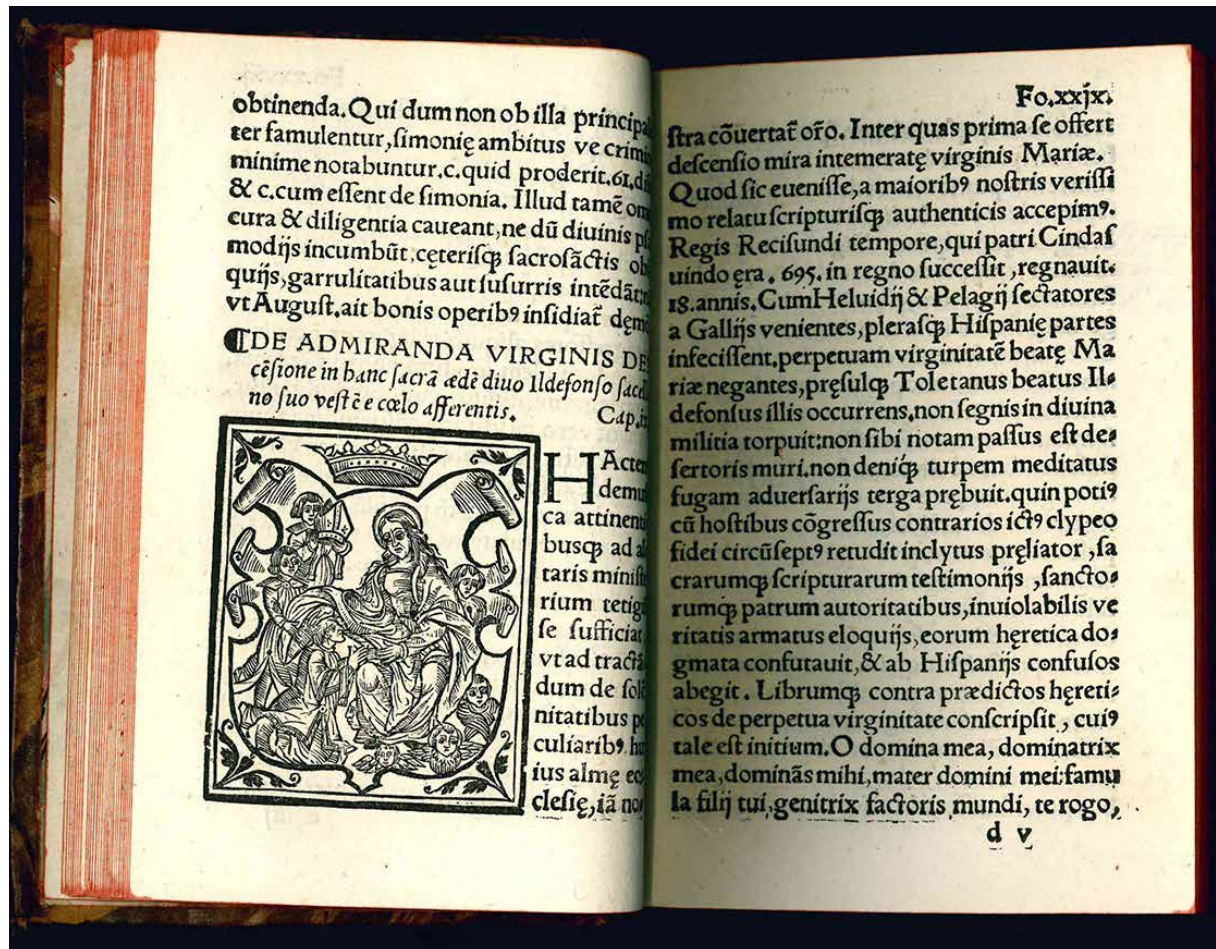 obtinenda.Qui dum non ob illa principal
ter famulentur,simonię ambitus ve crimi
minime notabuntur.c.quid proderit.61.di
& c.cum essent de simonia. Illud tamē om
cura & diligentia caueant,ne dū diuinis ps
modijs incumbūt,cęterisq; sacrosāctis ob
quijs,garrulitatibus aut susurris intēdāt:
vt August.ait bonis operibꝰ insidiat̃ dęmo
¶DE ADMIRANDA VIRGINIS DE
cēsione in hanc sacrā ædē diuo Ildefonso sacel
no suo vestē e cœlo afferentis. Cap.
HActen
demus
ca attinenti
busq; ad al
taris ministe
rium tetigi
se sufficiat
vt ad tractā
dum de solē
nitatibus pe
culiaribꝰ, hu
ius almę ec
clesię,iā no
Fo.xxjx.
stra cōuertat̃ or̃o. Inter quas prima se offert
descensio mira intemeratę virginis Mariæ.
Quod sic euenisse,a maioribꝰ nostris verissi
mo relatu scripturisq; authenticis accepimꝰ.
Regis Recisundi tempore,qui patri Cindas
uindo ęra. 695. in regno successit ,regnauit.
18.annis.Cum Heluidij & Pelagij sectatores
a Gallijs venientes,plerasq; Hispanię partes
infecissent.perpetuam virginitatē beatę Ma
riæ negantes,pręsulq; Toletanus beatus Il-
defonsus illis occurrens.non segnis in diuina
militia torpuit:non sibi notam passus est de-
sertoris muri.non deniq; turpem meditatus
fugam aduersarijs terga prębuit.quin potiꝰ
cū hostibus cōgressus contrarios ictꝰ clypeo
fidei circūseptꝰ retudit inclytus pręliator ,sa
crarumq; scripturarum testimonijs ,sancto-
rumq; patrum autoritatibus,inuiolabilis ve
ritatis armatus eloquijs,eorum hęretica do-
gmata confutauit,& ab Hispanijs confusos
abegit. Librumq; contra prædictos hęreti-
cos de perpetua virginitate conscripsit , cuiꝰ
tale est initium.O domina mea, dominatrix
mea,dominās mihi,mater domini mei:famu
la filij tui,genitrix factoris mundi, te rogo,
d v